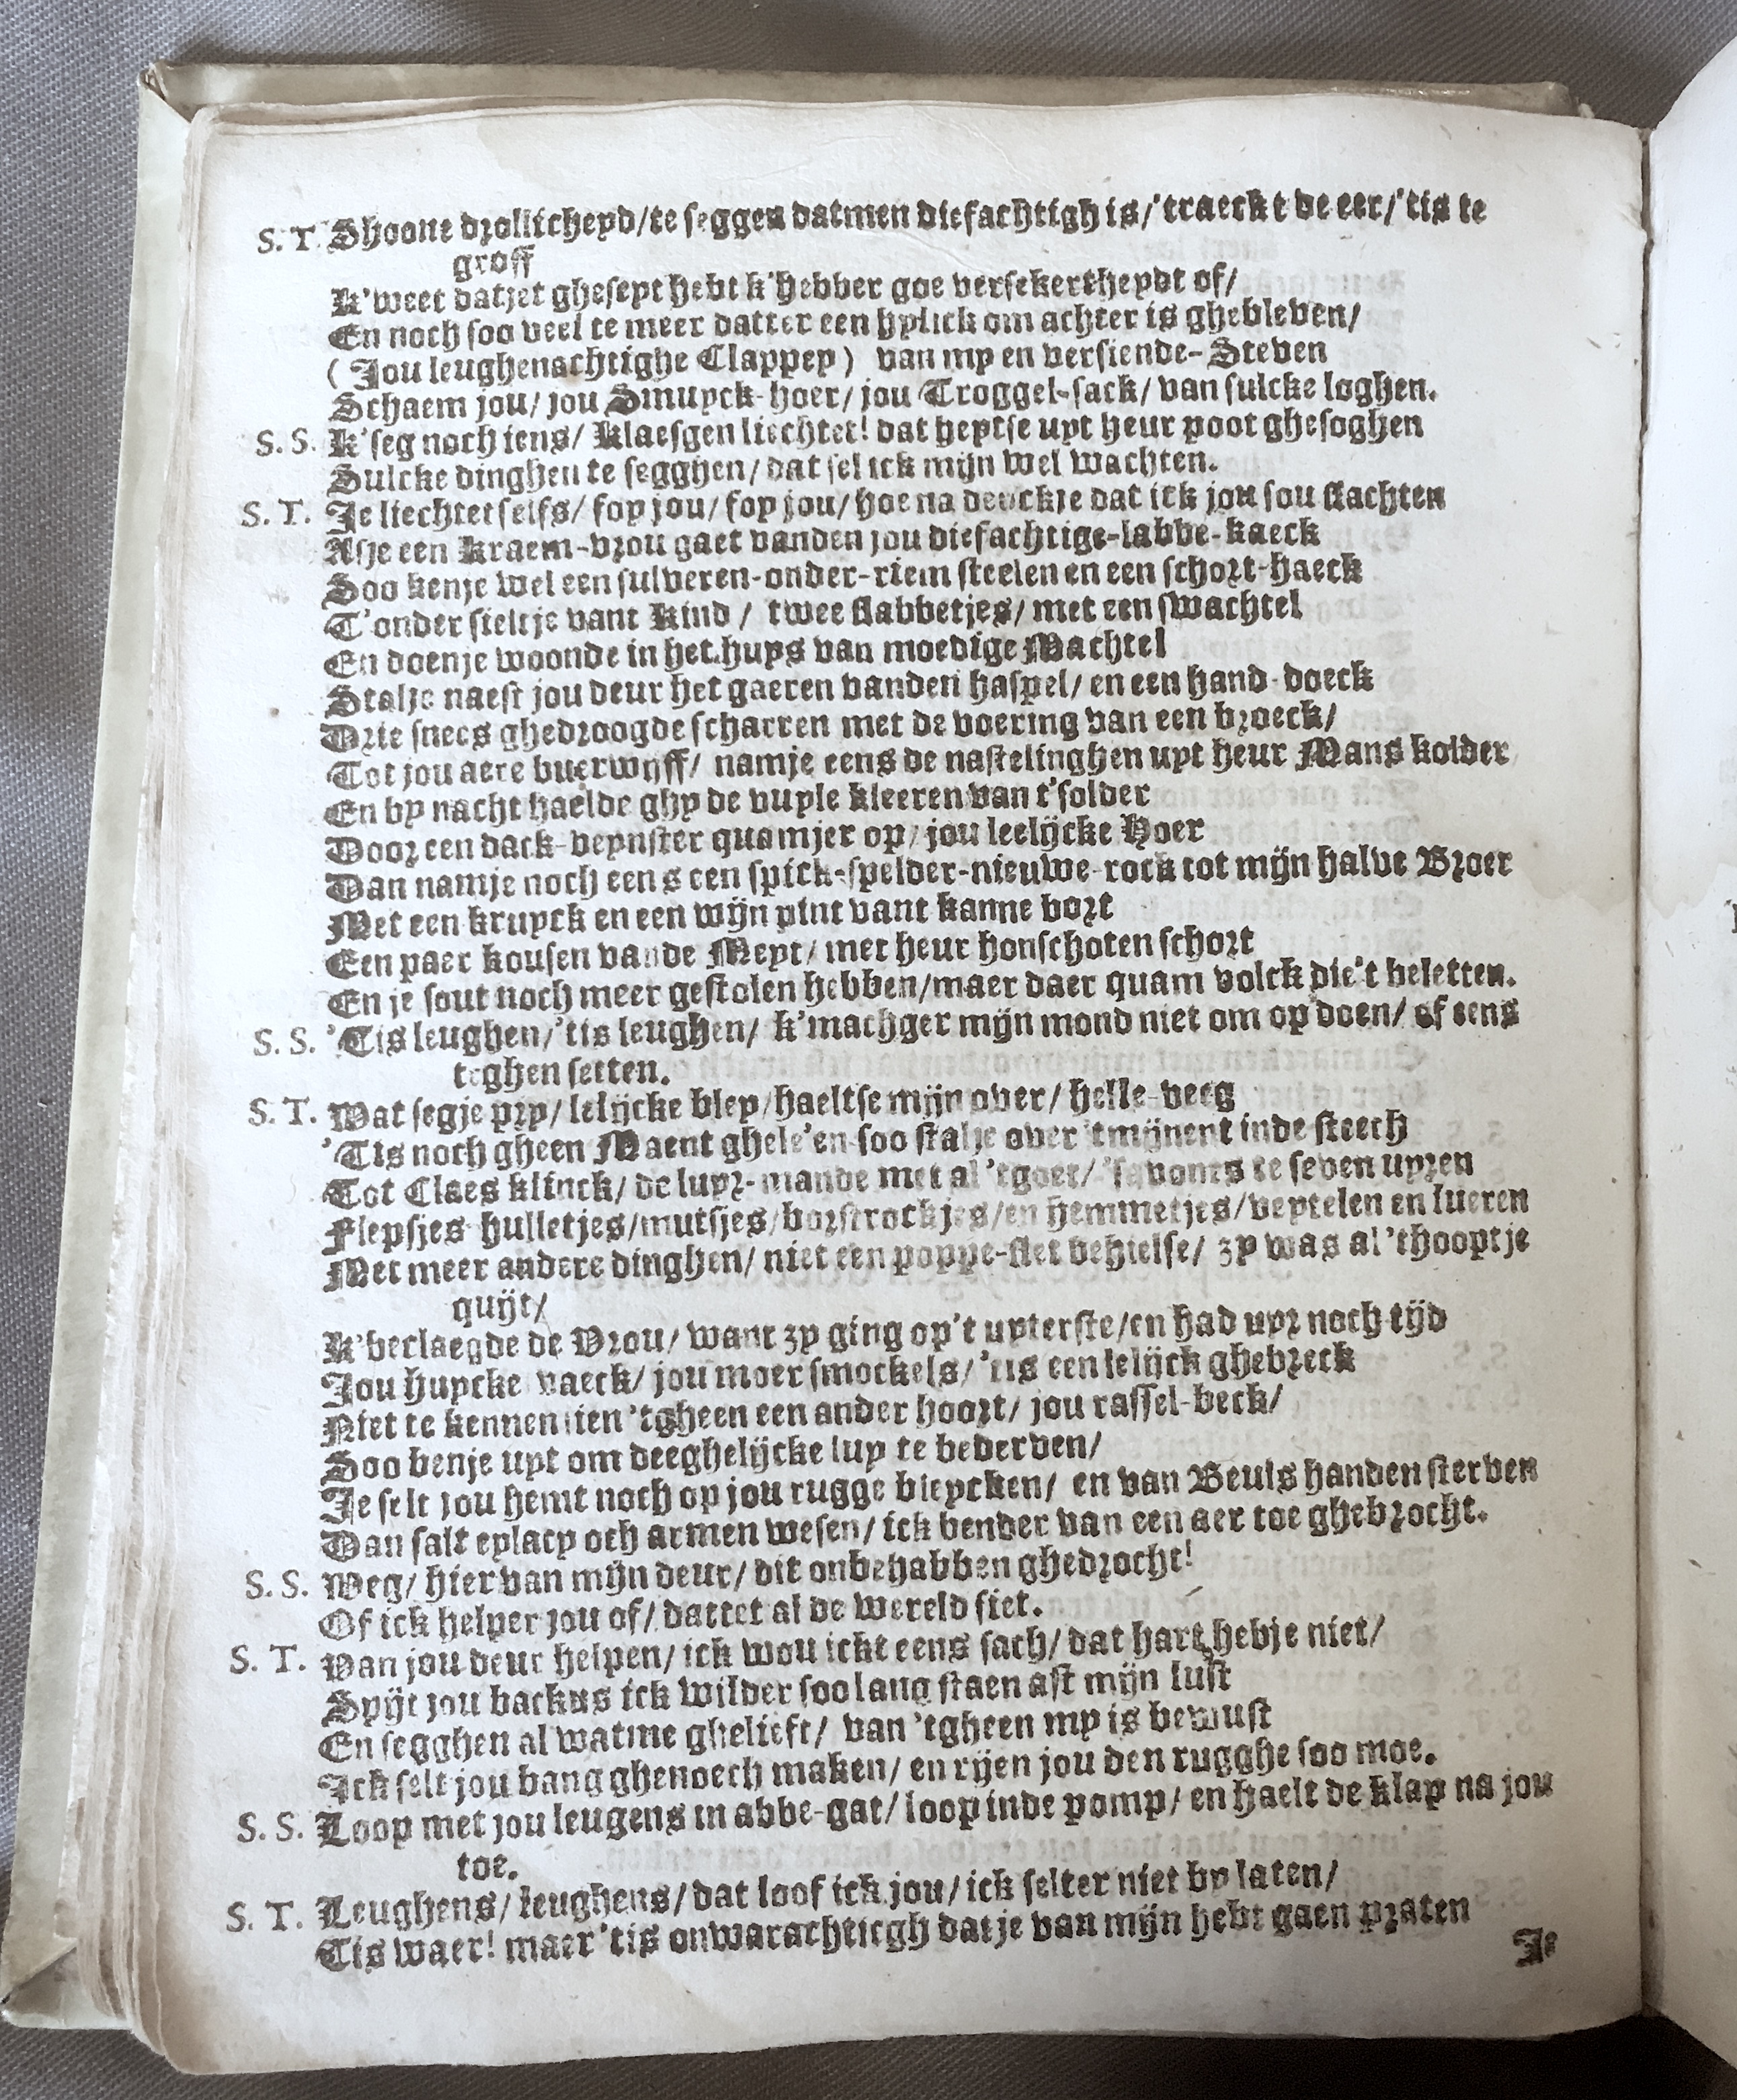 S. T. Shoone drollicheyd/te seggen datmen diefachtigh is/'traeckt de eer/'tis te
groff
K'weet datjet gheseyt hebt k'hebber goe versekertheydt of/
En noch soo veel te meer datter een hylick om achter is ghebleven/
(Jou leughenachtighe Clappey) van my en versiende-Steven
Schaem jou/ jou Smuyck-hoer/ jou Troggel-sack/ van sulcke loghen.
S. S. K'seg noch iens/ Klaesgen liechtet! dat heytse uyt heur poot ghesoghen
Sulcke dinghen te segghen/ dat sel ick mijn wel wachten.
S. T. Je liechtet selfs/ foy jou/ foy jou/ hoe na denckje dat ick jou sou slachten
Asje een Kraem-vrou gaet vanden jou diefachtige-labbe-kaeck
Soo kenje wel een sulveren-onder-riem steelen en een schort-haeck
T'onder sieltje vant Kind / twee slabbetjes/ met een swachtel
En doenje woonde in het huys van moedige Machtel
Stalje naest jou deur het gaeren vanden haspel/ en een hand-doeck
Drie snees ghedroogde scharren met de voering van een broeck/
Tot jou aere buerwijff/ namje eens de nastelinghen uyt heur Mans kolder
En by nacht haelde ghy de vuyle kleeren van t'solder
Door een dack-veynster quamjer op/ jou leelijcke Hoer
Dan namje noch eens een spick-spelder-nieuwe-rock tot mijn halve Broer
Met een kruyck en een wijn pint vant kanne bort
Een paer kousen vande Meyt/ met heur honschoten schort
En je sout noch meer gestolen hebben/maer daer quam volck die't beletten.
S. S. 'Tis leughen/'tis leughen/ k'machger mijn mond niet om op doen/ of eens
teghen setten.
S. T. Wat segje pry/ lelijcke bley/haeltse mijn over/ helle-veeg
'Tis noch gheen Maent ghele'en soo stalje over 'tmijnent inde steech
Tot Claes klinck/ de luyr-mande met al 'tgoet/ 'savonts te seven uyren
Flepsjes hulletjes/mutsjes/borstrockjes/en hemmetjes/veytelen en lueren
Met meer andere dinghen/ niet een poppe-slet behielse/ zy was al 'thooptje
quijt/
K'beclaegde de Vrou/ want zy ging op't uyterste/en had uyr noch tijd
Jou huycke vaeck/ jou moer smockels/ 'tis een lelijck ghebreck
Niet te kennen sien 'tgheen een ander hoort/ jou rassel-beck/
Soo benje uyt om deeghelijcke luy te bederven/
Je selt jou hemt noch op jou rugge bleycken/ en van Beuls handen sterven
Dan salt eylacy och armen wesen/ ick bender van een aer toe ghebrocht.
S. S. Weg/ hier van mijn deur/ dit onbehabben ghedrocht!
Of ick helper jou of/ dattet al de wereld siet.
S. T. Van jou deur helpen/ ick wou ickt eens sach/ dat hart hebje niet/
Spijt jou backus ick wilder soo lang staen ast mijn lust
En segghen al watme ghelieft/ van 'tgheen my is bewust
Ick selt jou bang ghenoech maken/ en rijen jou den rugghe soo moe.
S. S. Loop met jou leugens in abbe-gat/ loop inde pomp/ en haelt de klap na jou
toe.
S. T. Leughens/ leughens/ dat loof ick jou/ ick selter niet by laten/
Tis waer! maer 'tis onwarachticgh datje van mijn hebt gaen praten
Je